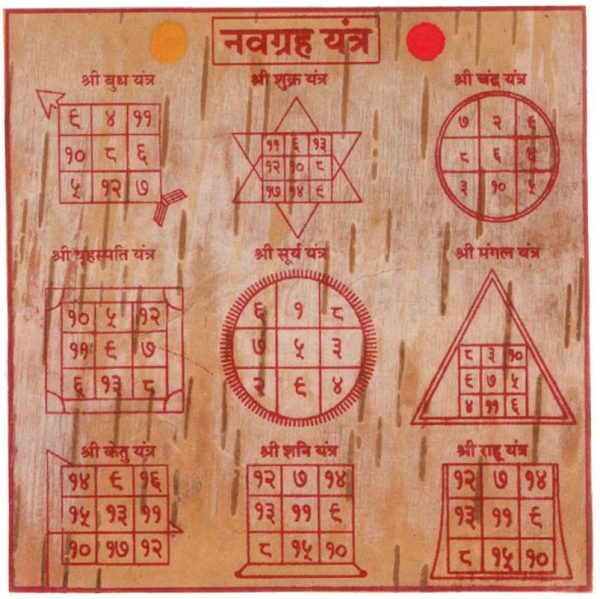 नवग्रह यंत्र
श्री बुध यंत्र
९ ४ ११
१० ८ ६
५ १२ ७
श्री शुक्र यंत्र
११ ६ १३
१२ १० ८
१७ १४ ९
श्री चंद्र यंत्र
७ २
८ ६
३ १०
श्री बृहस्पति यंत्र
१० ५ १२
११ ९ ७
६ १३ ८
श्री सूर्य यंत्र
६ १ ८
७ ५ ३
२ ९ ४
श्री मंगल यंत्र
८ ३ १०
९ ७ ५
४ ११ ६
श्री केतु यंत्र
१४ ९ १६
१५ १३ ११
१० १७ १२
श्री शनि यंत्र
१२ ७ १४
१३ ११ ९
८ १५ १०
श्री राहू यंत्र
१२ ७ १४
१३ ११ ९
८ १५ १०